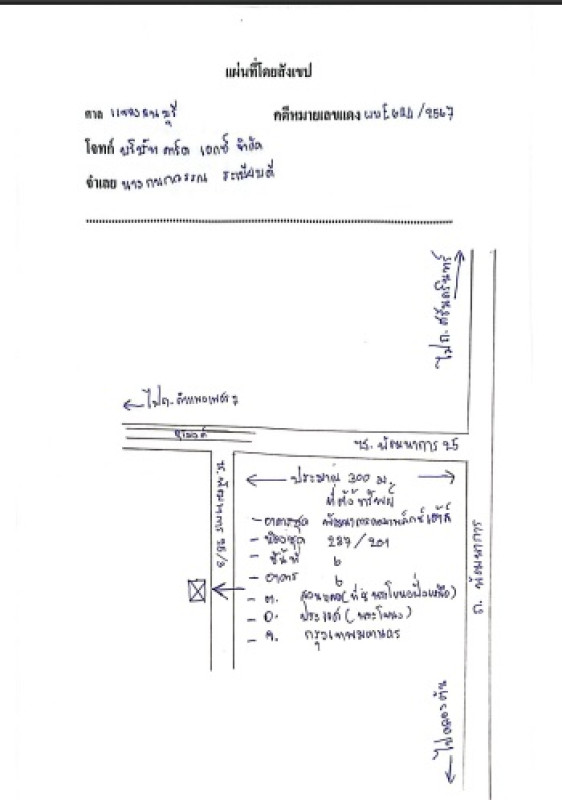 แผนที่โดยสังเขป
ศาล แพ่งธนบุรี คดีหมายเลขแดง /2567
โจทก์ บริษัท คาร์ด เอกซ์ จำกัด
จำเลย นาง ระเบียบดี
ไปถ.ศรีนครินทร์
ไปถ.กำแพงเพชร 7
อุโมงค์
ซ. พัฒนาการ 25
ซ. พัฒนาการ 25/3
ประมาณ 300 ม.
ที่ตั้งทรัพย์
- อาคารชุด
- ห้องชุด 287/201
- ชั้นที่ 6
- อาคาร 6
- ต. สวนหลวง(ที่ 4 พระโขนงฝั่งเหนือ)
- อ. ประเวศ (พระโขนง)
- จ. กรุงเทพมหานคร
ถ. พัฒนาการ
ไปคลองตัน